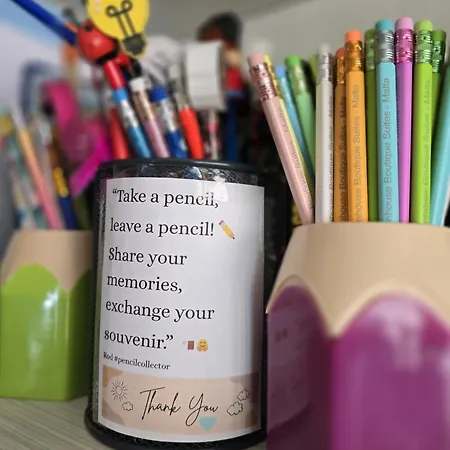 “Take a pencil,
leave a pencil! ✏️
Share your
memories,
exchange your
souvenir.”
Rod #pencilcollector
Thank You
house Boutique Suites - Malta
house Boutique Suites - Malta
Boutique Suites - Malta